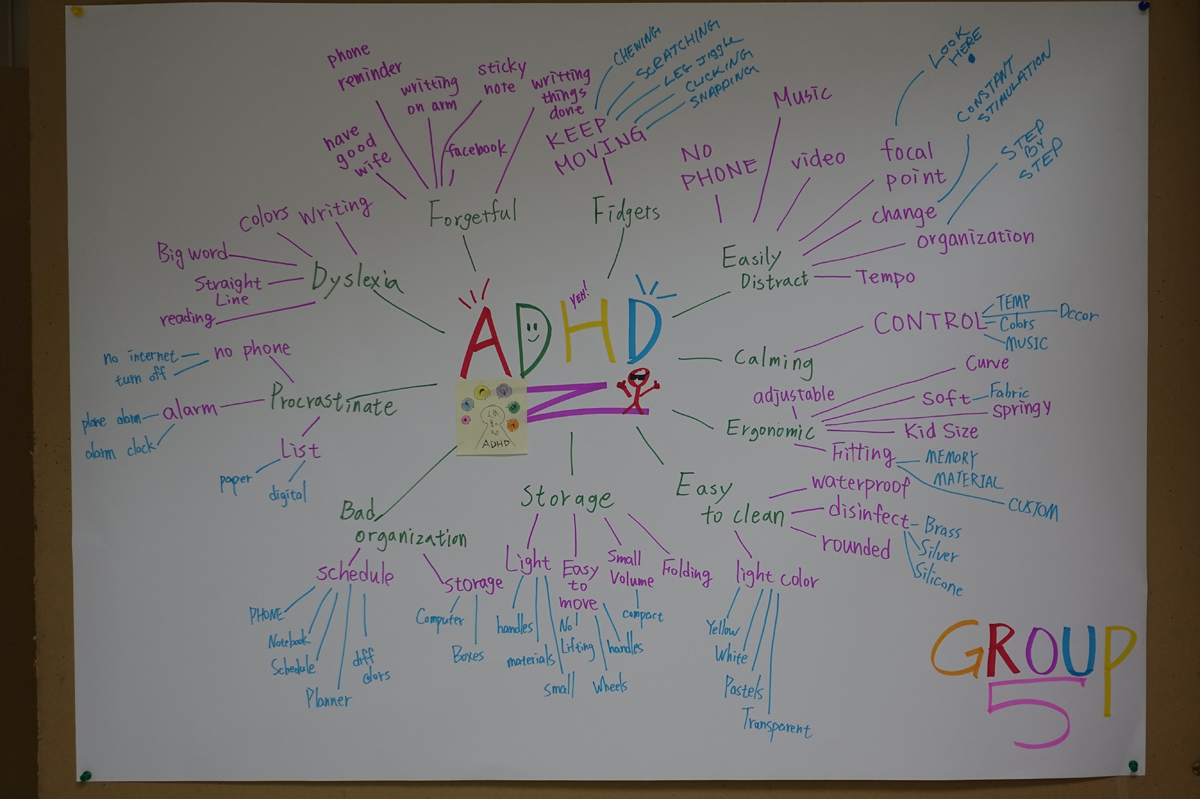 ADHD
YEH!
ADHD
Forgetful
have
good
wife
phone
reminder
writting
on arm
facebook
sticky
note
writting
things
done
Fidgets
KEEP
MOVING
CHEWING
SCRATCHING
LEG JIGGLE
CLICKING
SNAPPING
Easily
Distract
NO
PHONE
MUSIC
video
focal
point
LOOK
HERE
change
CONSTANT
STIMULATION
organization
STEP
BY
STEP
Tempo
Calming
CONTROL
TEMP
Colors
MUSIC
Dccor
Ergonomic
adjustable
Curve
Soft
Fabric
springy
Kid Size
Fitting
MEMORY
MATERIAL
CUSTOM
Easy
to clean
waterproof
disinfect
Brass
Silver
Silicone
rounded
light color
Yellow
White
Pastels
Transparent
Storage
Light
handles
materials
small
Easy
to
move
No
Lifting
Wheels
handles
Small
Volume
compact
Folding
Bad
organization
schedule
PHONE
Notebook
Schedule
Planner
diff
colors
storage
Computer
Boxes
Procrastinate
no phone
no internet
turn off
alarm
plane alarm
alarm clock
List
paper
digital
Dyslexia
colors
Writing
Big word
Straight
Line
reading
GROUP
5